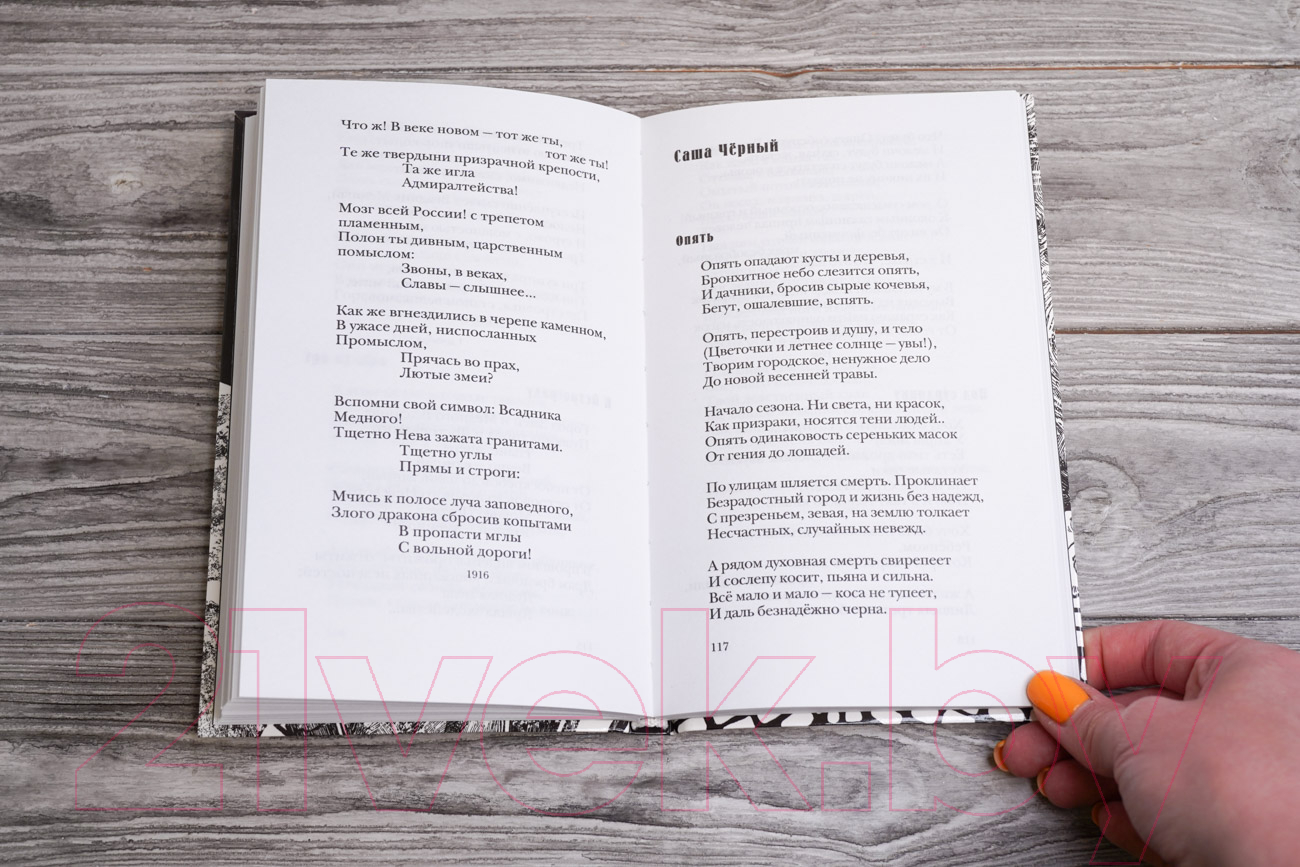 Что ж! В веке новом — тот же ты,
тот же ты!
Те же твердыни призрачной крепости,
Та же игла
Адмиралтейства!
Мозг всей России! с трепетом
пламенным,
Полон ты дивным, царственным
помыслом:
Звоны, в веках,
Славы — слышнее...
Как же вгнездились в черепе каменном,
В ужасе дней, ниспосланных
Промыслом,
Прячась во прах,
Лютые змеи?
Вспомни свой символ: Всадника
Медного!
Тщетно Нева зажата гранитами.
Тщетно углы
Прямы и строги:
Мчись к полосе луча заповедного,
Злого дракона сбросив копытами
В пропасти мглы
С вольной дороги!
1916
Саша Чёрный
Опять
Опять опадают кусты и деревья,
Бронхитное небо слезится опять,
И дачники, бросив сырые кочевья,
Бегут, ошалевшие, вспять.
Опять, перестроив и душу, и тело
(Цветочки и летнее солнце — увы!),
Творим городское, ненужное дело
До новой весенней травы.
Начало сезона. Ни света, ни красок,
Как призраки, носятся тени людей..
Опять одинаковость сереньких масок
От гения до лошадей.
По улицам шляется смерть. Проклинает
Безрадостный город и жизнь без надежд,
С презреньем, зевая, на землю толкает
Несчастных, случайных невежд.
А рядом духовная смерть свирепеет
И сослепу косит, пьяна и сильна.
Всё мало и мало — коса не тупеет,
И даль безнадёжно черна.
117
21vek.by